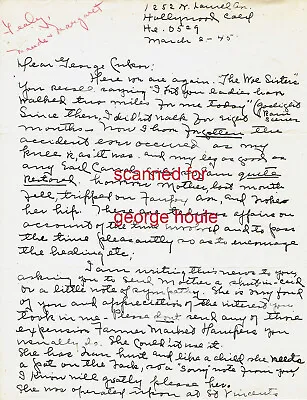 1252 N. Laurel Av.
Hollywood Calif
He. 0529
March 2-45
Dear George Cukor
Here we are again. "The Woe Sisters"
You recall saying "I bet you ladies have
walked two miles for me today" (Gaslight
Since then, I did not walk for Eight
months - Now I have forgotten the
accident ever occured as my
knee is as it was. and my leg as good as
any Earl Carroll am quite
restored, however Mother, last month
fell, tripped on Fairfax Ave, and broke
her hip. These are affairs on
account of the time involved and to pass
the time pleasantly so as to encourage
the healing, etc.
I am writing this news to you,
asking you to send Mother a shut-in card
or a little note of sympathy. She is very fond
of you and appreciative of the interest you
took in me - Please don't send any of those
expensive Farmer Market Hampers you
usually do. She could not use it.
She has been hurt and like a child she needs
a pat on the back, so a "sorry" note from you
I know will greatly please her.
She was operated upon at St Vincents
scanned for
george houle